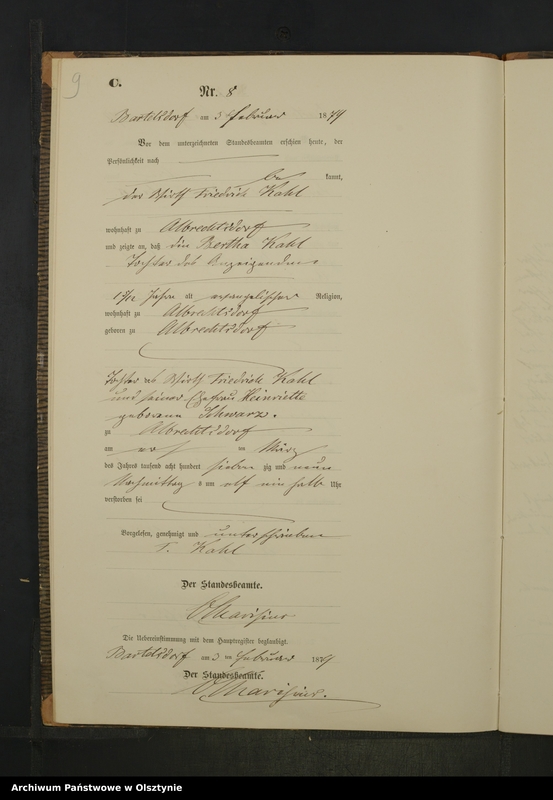 9
C.
Nr. 8
Bartelsdorf am 3 Februar 1879
Vor dem unterzeichneten Standesbeamten erschien heute, der
Persönlichkeit nach
be kannt,
der Wirth Friedrich Kahl
wohnhaft zu Albrechtsdorf
und zeigte an, daß die Bertha Kahl
Tochter des Anzeigenden
Jahre alt evangelischer Religion,
wohnhaft zu Albrechtsdorf
geboren zu Albrechtsdorf
Tochter des Wirth Friedrich Kahl
und seiner Ehefrau Henriette
geborene Schwarz.
zu Albrechtsdorf
am ten
des Jahres tausend acht hundert sieben zig und neun
Nachmittag s um elf ein halb Uhr
verstorben sei
Vorgelesen, genehmigt und unterschrieben
F. Kahl
Der Standesbeamte.
Die Uebereinstimmung mit dem Hauptregister beglaubigt.
Bartelsdorf am 3 ten Februar 1879
Der Standesbeamte.
Archiwum Państwowe w Olsztynie